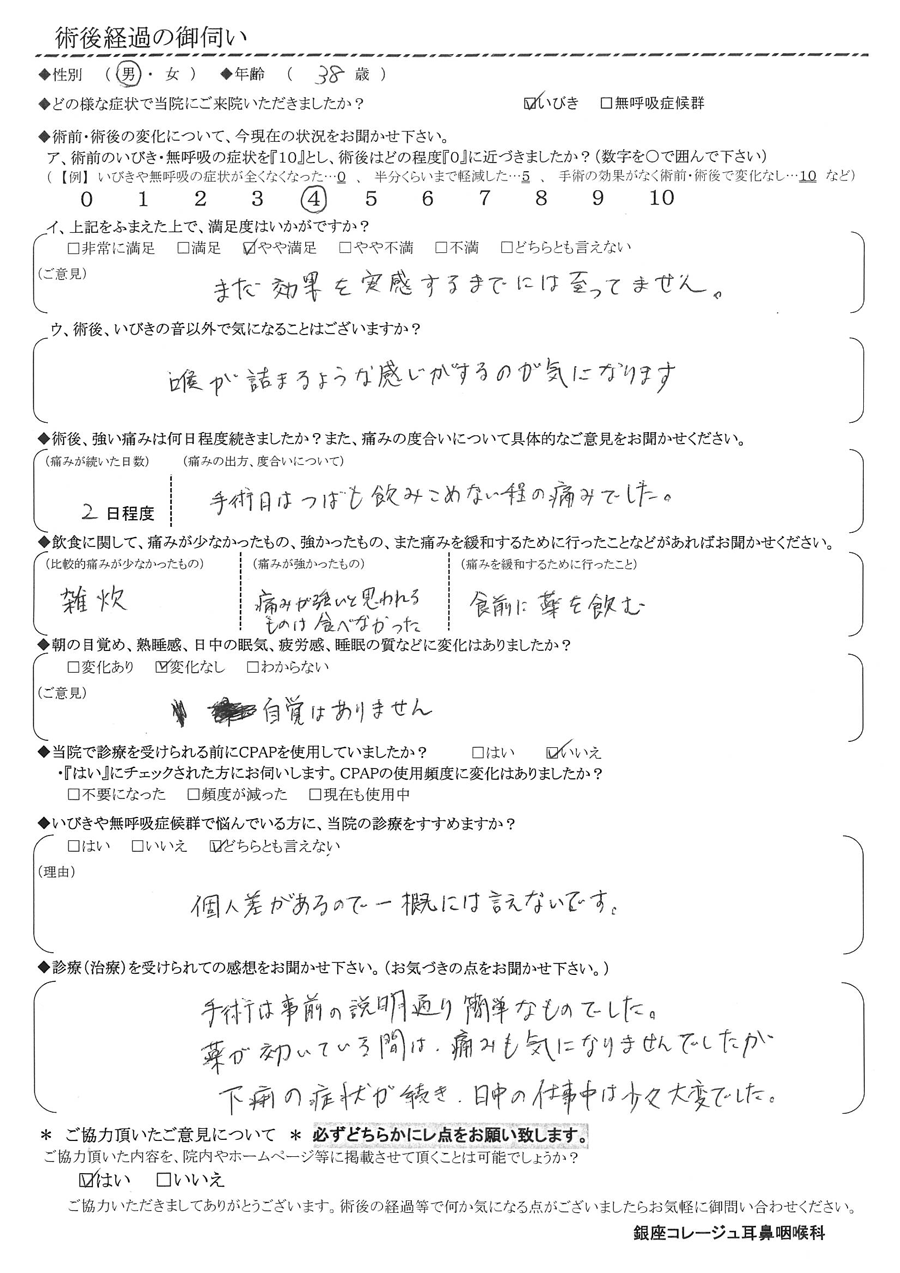 術後経過の御伺い
◆性別 （ 男 ・ 女 ） ◆年齢 （ 38 歳 ）
◆どの様な症状で当院にご来院いただきましたか？ ☑いびき □無呼吸症候群
◆術前・術後の変化について、今現在の状況をお聞かせ下さい。
ア、術前のいびき・無呼吸の症状を『10』とし、術後はどの程度『0』に近づきましたか？（数字を〇で囲んで下さい）
（【例】いびきや無呼吸の症状が全くなくなった…0 、 半分くらいまで軽減した…5 、 手術の効果がなく術前・術後で変化なし…10 など）
0 1 2 3 4 5 6 7 8 9 10
イ、上記をふまえた上で、満足度はいかがですか？
□非常に満足 □満足 ☑やや満足 □やや不満 □不満 □どちらとも言えない
（ご意見）
まだ効果を実感するまでには至ってません。
ウ、術後、いびきの音以外で気になることはございますか？
喉が詰まるような感じがするのが気になります
◆術後、強い痛みは何日程度続きましたか？また、痛みの度合いについて具体的なご意見をお聞かせください。
（痛みが続いた日数） （痛みの出方、度合いについて）
2 日程度 手術日はつばも飲みこめない程の痛みでした。
◆飲食に関して、痛みが少なかったもの、強かったもの、また痛みを緩和するために行ったことなどがあればお聞かせください。
（比較的痛みが少なかったもの） （痛みが強かったもの） （痛みを緩和するために行ったこと）
雑炊 痛みが強いと思われる 食前に薬を飲む
ものは食べなかった
◆朝の目覚め、熟睡感、日中の眠気、疲労感、睡眠の質などに変化はありましたか？
□変化あり ☑変化なし □わからない
（ご意見）
自覚はありません
◆当院で診療を受けられる前にCPAPを使用していましたか？ □はい ☑いいえ
・『はい』にチェックされた方にお伺いします。CPAPの使用頻度に変化はありましたか？
□不要になった □頻度が減った □現在も使用中
◆いびきや無呼吸症候群で悩んでいる方に、当院の診療をすすめますか？
□はい □いいえ ☑どちらとも言えない
（理由）
個人差があるので一概には言えないです。
◆診療（治療）を受けられての感想をお聞かせ下さい。（お気づきの点をお聞かせ下さい。）
手術は事前の説明通り簡単なものでした。
薬が効いている間は、痛みも気になりませんでしたが
下痢の症状が続き、日中の仕事中は少々大変でした。
＊ ご協力頂いたご意見について ＊ 必ずどちらかにレ点をお願い致します。
ご協力頂いた内容を、院内やホームページ等に掲載させて頂くことは可能でしょうか？
☑はい □いいえ
ご協力いただきましてありがとうございます。術後の経過等で何か気になる点がございましたらお気軽に御問い合わせください。
銀座コレージュ耳鼻咽喉科